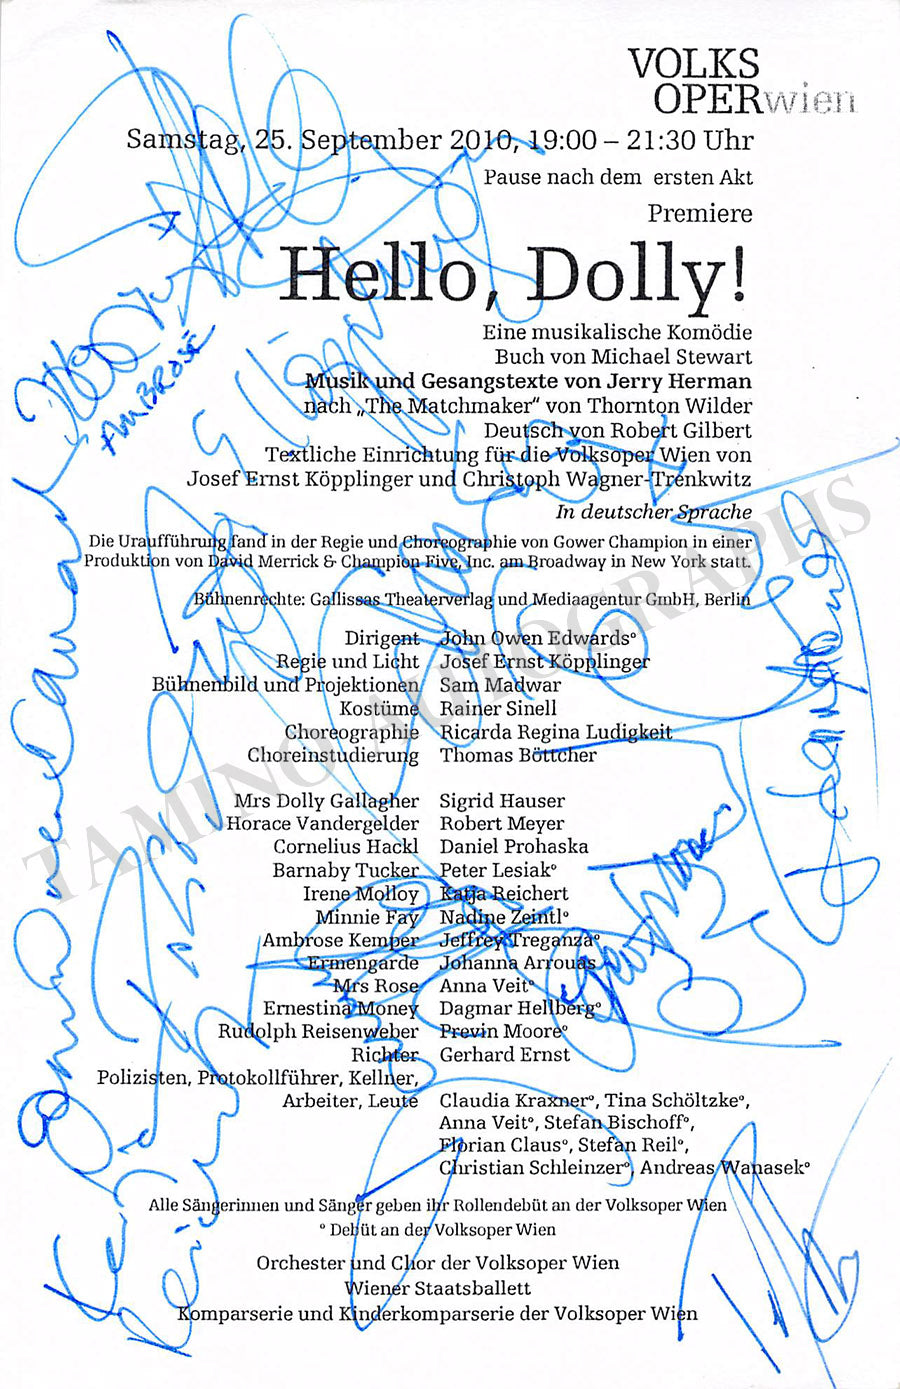 VOLKS
OPERwien
Samstag, 25. September 2010, 19:00 – 21:30 Uhr
Pause nach dem ersten Akt
Premiere
Hello, Dolly!
Eine musikalische Komödie
Buch von Michael Stewart
Musik und Gesangstexte von Jerry Herman
nach „The Matchmaker“ von Thornton Wilder
Deutsch von Robert Gilbert
Textliche Einrichtung für die Volksoper Wien von
Josef Ernst Köpplinger und Christoph Wagner-Trenkwitz
In deutscher Sprache
Die Uraufführung fand in der Regie und Choreographie von Gower Champion in einer
Produktion von David Merrick & Champion Five, Inc. am Broadway in New York statt.
Bühnenrechte: Gallissas Theaterverlag und Mediaagentur GmbH, Berlin
Dirigent John Owen Edwards°
Regie und Licht Josef Ernst Köpplinger
Bühnenbild und Projektionen Sam Madwar
Kostüme Rainer Sinell
Choreographie Ricarda Regina Ludigkeit
Choreinstudierung Thomas Böttcher
Mrs Dolly Gallagher Sigrid Hauser
Horace Vandergelder Robert Meyer
Cornelius Hackl Daniel Prohaska
Barnaby Tucker Peter Lesiak°
Irene Molloy Katja Reichert
Minnie Fay Nadine Zeintl°
Ambrose Kemper Jeffrey Treganza°
Ermengarde Johanna Arrouas
Mrs Rose Anna Veit°
Ernestina Money Dagmar Hellberg°
Rudolph Reisenweber Previn Moore°
Richter Gerhard Ernst
Polizisten, Protokollführer, Kellner,
Arbeiter, Leute Claudia Kraxner°, Tina Schöltzke°,
Anna Veit°, Stefan Bischoff°,
Florian Claus°, Stefan Reil°,
Christian Schleinzer°, Andreas Wanasek°
Alle Sängerinnen und Sänger geben ihr Rollendebüt an der Volksoper Wien
° Debüt an der Volksoper Wien
Orchester und Chor der Volksoper Wien
Wiener Staatsballett
Komparserie und Kinderkomparserie der Volksoper Wien
AMBROSE
TAMINO AUTOGRAPHS